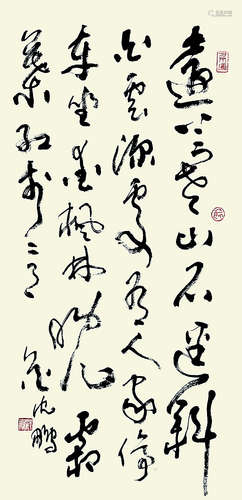 遠上寒山石徑斜
白雲深處有人家停
車坐愛楓林晚霜
葉紅於二月花 沈鵬